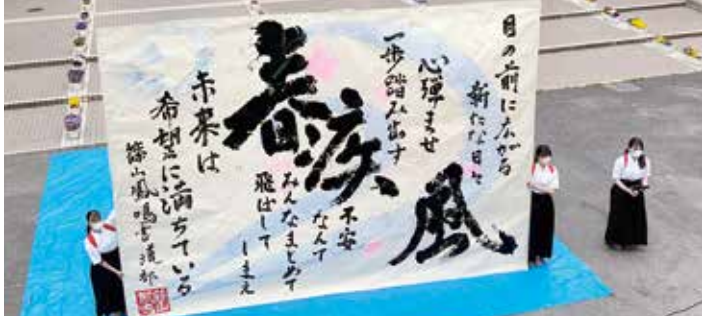 目の前に広がる
新たな日々
心弾ませ
一歩踏み出す
春疾風
不安
なんて
みんなまとめて
飛ばして
しまえ
未来は
希望に満ちている
篠山鳳鳴書道部